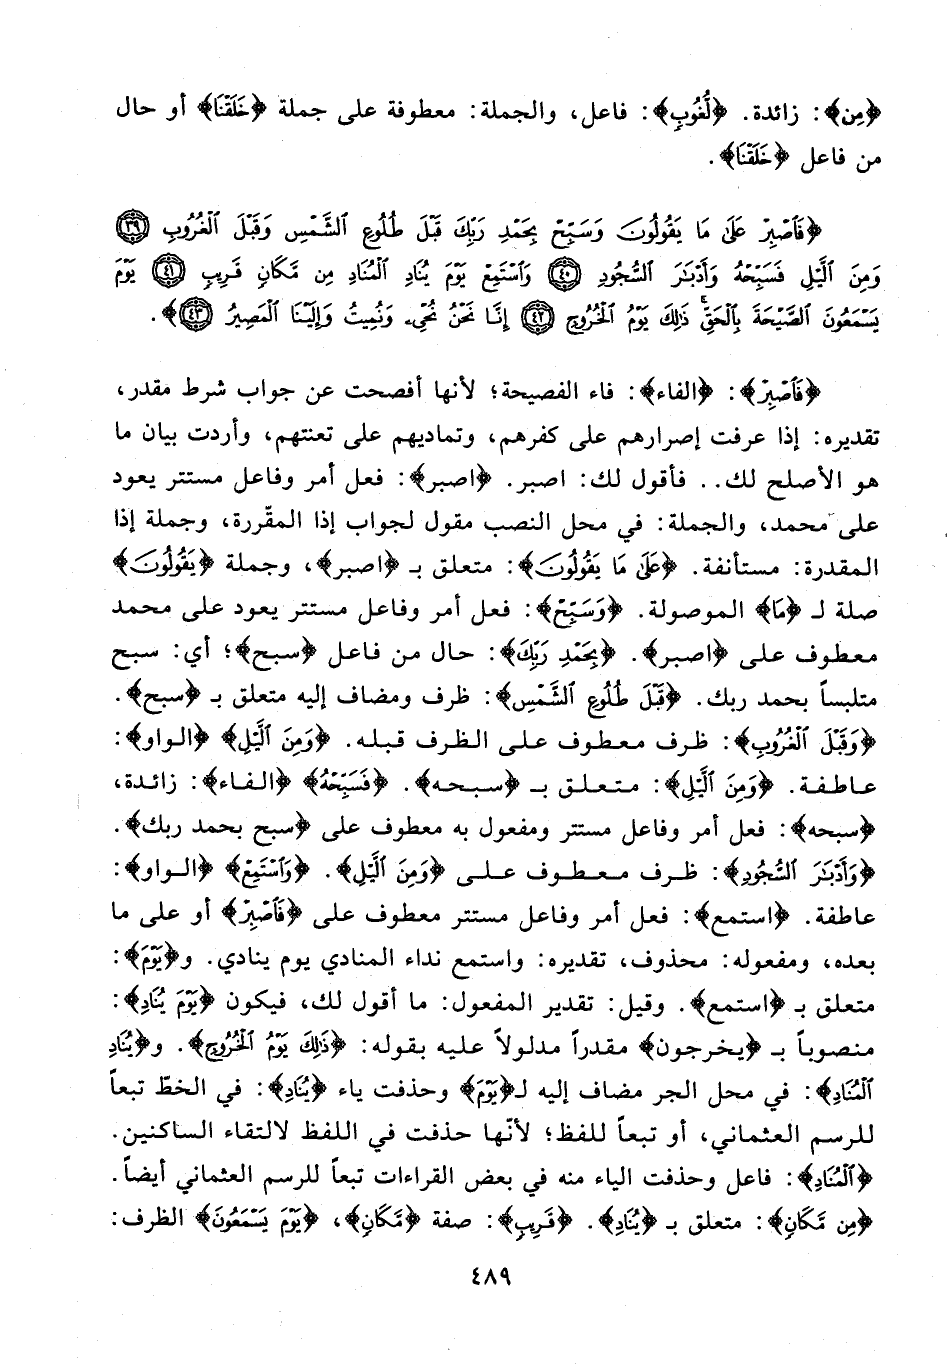 ﴿مِن﴾: زائدة. ﴿لُّغُوبٍ﴾: فاعل، والجملة: معطوفة على جملة ﴿خَلَقْنَا﴾ أو حال
من فاعل ﴿خَلَقْنَا﴾.
﴿فَاصْبِرْ عَلَىٰ مَا يَقُولُونَ وَسَبِّحْ بِحَمْدِ رَبِّكَ قَبْلَ طُلُوعِ الشَّمْسِ وَقَبْلَ الْغُرُوبِ ٣٩
وَمِنَ الَّيْلِ فَسَبِّحْهُ وَأَدْبَٰرَ السُّجُودِ ٤٠ وَاسْتَمِعْ يَوْمَ يُنَادِ الْمُنَادِ مِن مَّكَانٍ قَرِيبٍ ٤١ يَوْمَ
يَسْمَعُونَ الصَّيْحَةَ بِالْحَقِّ ۚ ذَٰلِكَ يَوْمُ الْخُرُوجِ ٤٢ إِنَّا نَحْنُ نُحْيِۦ وَنُمِيتُ وَإِلَيْنَا الْمَصِيرُ ٤٣﴾.
﴿فَاصْبِرْ﴾: ﴿الفاء﴾: فاء الفصيحة؛ لأنها أفصحت عن جواب شرط مقدر،
تقديره: إذا عرفت إصرارهم على كفرهم، وتماديهم على تعنتهم، وأردت بيان ما
هو الأصلح لك.. فأقول لك: اصبر. ﴿اصبر﴾: فعل أمر وفاعل مستتر يعود
على محمد، والجملة: في محل النصب مقول لجواب إذا المقّررة، وجملة إذا
المقدرة: مستأنفة. ﴿عَلَىٰ مَا يَقُولُونَ﴾: متعلق بـ ﴿اصبر﴾، وجملة ﴿يَقُولُونَ﴾
صلة لـ ﴿مَا﴾ الموصولة. ﴿وَسَبِّحْ﴾: فعل أمر وفاعل مستتر يعود على محمد
معطوف على ﴿اصبر﴾. ﴿بِحَمْدِ رَبِّكَ﴾: حال من فاعل ﴿سبح﴾؛ أي: سبح
متلبساً بحمد ربك. ﴿قَبْلَ طُلُوعِ الشَّمْسِ﴾: ظرف ومضاف إليه متعلق بـ ﴿سبح﴾.
﴿وَقَبْلَ الْغُرُوبِ﴾: ظرف معطوف على الظرف قبله. ﴿وَمِنَ الَّيْلِ﴾ ﴿الواو﴾:
عاطفة. ﴿وَمِنَ الَّيْلِ﴾: متعلق بـ ﴿سبحه﴾. ﴿فَسَبِّحْهُ﴾ ﴿الفاء﴾: زائدة،
﴿سبحه﴾: فعل أمر وفاعل مستتر ومفعول به معطوف على ﴿سبح بحمد ربك﴾.
﴿وَأَدْبَٰرَ السُّجُودِ﴾: ظرف معطوف على ﴿وَمِنَ الَّيْلِ﴾. ﴿وَاسْتَمِعْ﴾ ﴿الواو﴾:
عاطفة. ﴿استمع﴾: فعل أمر وفاعل مستتر معطوف على ﴿فَاصْبِرْ﴾ أو على ما
بعده، ومفعوله: محذوف، تقديره: واستمع نداء المنادي يوم ينادي. و﴿يَوْمَ﴾:
متعلق بـ ﴿استمع﴾. وقيل: تقدير المفعول: ما أقول لك، فيكون ﴿يَوْمَ يُنَادِ﴾:
منصوباً بـ ﴿يخرجون﴾ مقدراً مدلولاً عليه بقوله: ﴿ذَٰلِكَ يَوْمُ الْخُرُوجِ﴾. و﴿يُنَادِ
الْمُنَادِ﴾: في محل الجر مضاف إليه لـ﴿يَوْمَ﴾ وحذفت ياء ﴿يُنَادِ﴾: في الخطّ تبعاً
للرسم العثماني، أو تبعاً للفظ؛ لأنّها حذفت في اللفظ لالتقاء الساكنين.
﴿الْمُنَادِ﴾: فاعل وحذفت الياء منه في بعض القراءات تبعاً للرسم العثماني أيضاً.
﴿مِن مَّكَانٍ﴾: متعلق بـ ﴿يُنَادِ﴾. ﴿قَرِيبٍ﴾: صفة ﴿مَّكَانٍ﴾، ﴿يَوْمَ يَسْمَعُونَ﴾ الظرف:
٤٨٩